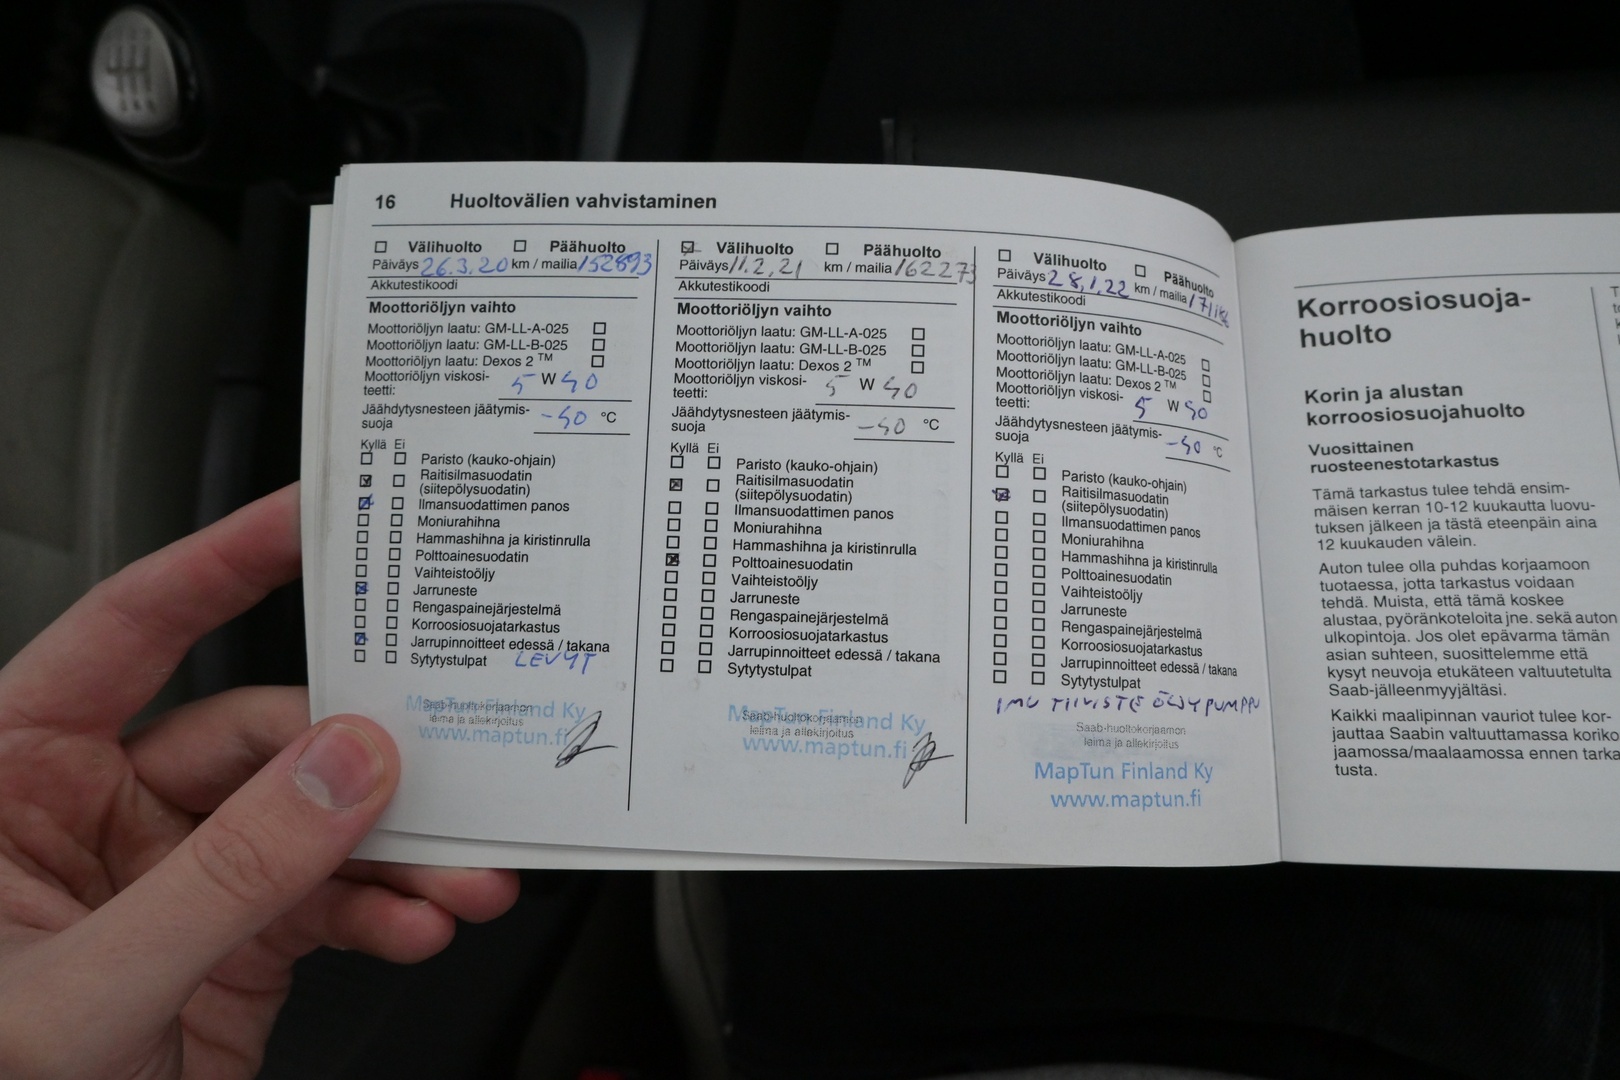 16 Huoltovälien vahvistaminen
Välihuolto Päähuolto
Päiväys 26.3.20 km / mailia 152893
Akkutestikoodi
Moottoriöljyn vaihto
Moottoriöljyn laatu: GM-LL-A-025
Moottoriöljyn laatu: GM-LL-B-025
Moottoriöljyn laatu: Dexos 2 TM
Moottoriöljyn viskosi-
teetti: 5 W 40
Jäähdytysnesteen jäätymis-
suoja -40 °C
Kyllä Ei
Paristo (kauko-ohjain)
Raitisilmasuodatin
(siitepölysuodatin)
Ilmansuodattimen panos
Moniurahihna
Hammashihna ja kiristinrulla
Polttoainesuodatin
Vaihteistoöljy
Jarruneste
Rengaspainejärjestelmä
Korroosiosuojatarkastus
Jarrupinnoitteet edessä / takana
Sytytystulpat LEVYT
Saab-huoltokorjaamon
leima ja allekirjoitus
MapTun Finland Ky
www.maptun.fi
Välihuolto Päähuolto
Päiväys 11.2.21 km / mailia 162273
Akkutestikoodi
Moottoriöljyn vaihto
Moottoriöljyn laatu: GM-LL-A-025
Moottoriöljyn laatu: GM-LL-B-025
Moottoriöljyn laatu: Dexos 2 TM
Moottoriöljyn viskosi-
teetti: 5 W 40
Jäähdytysnesteen jäätymis-
suoja -40 °C
Kyllä Ei
Paristo (kauko-ohjain)
Raitisilmasuodatin
(siitepölysuodatin)
Ilmansuodattimen panos
Moniurahihna
Hammashihna ja kiristinrulla
Polttoainesuodatin
Vaihteistoöljy
Jarruneste
Rengaspainejärjestelmä
Korroosiosuojatarkastus
Jarrupinnoitteet edessä / takana
Sytytystulpat
Saab-huoltokorjaamon
leima ja allekirjoitus
MapTun Finland Ky
www.maptun.fi
Välihuolto Päähuolto
Päiväys 28.1.22 km / mailia
Akkutestikoodi
Moottoriöljyn vaihto
Moottoriöljyn laatu: GM-LL-A-025
Moottoriöljyn laatu: GM-LL-B-025
Moottoriöljyn laatu: Dexos 2 TM
Moottoriöljyn viskosi-
teetti: 5 W 40
Jäähdytysnesteen jäätymis-
suoja -40 °C
Kyllä Ei
Paristo (kauko-ohjain)
Raitisilmasuodatin
(siitepölysuodatin)
Ilmansuodattimen panos
Moniurahihna
Hammashihna ja kiristinrulla
Polttoainesuodatin
Vaihteistoöljy
Jarruneste
Rengaspainejärjestelmä
Korroosiosuojatarkastus
Jarrupinnoitteet edessä / takana
Sytytystulpat
IMU TIIVISTE ÖLJYPUMPPU
Saab-huoltokorjaamon
leima ja allekirjoitus
MapTun Finland Ky
www.maptun.fi
Korroosiosuoja-
huolto
Korin ja alustan
korroosiosuojahuolto
Vuosittainen
ruosteenestotarkastus
Tämä tarkastus tulee tehdä ensim-
mäisen kerran 10-12 kuukautta luovu-
tuksen jälkeen ja tästä eteenpäin aina
12 kuukauden välein.
Auton tulee olla puhdas korjaamoon
tuotaessa, jotta tarkastus voidaan
tehdä. Muista, että tämä koskee
alustaa, pyöränkoteloita jne. sekä auton
ulkopintoja. Jos olet epävarma tämän
asian suhteen, suosittelemme että
kysyt neuvoja etukäteen valtuutetulta
Saab-jälleenmyyjältäsi.
Kaikki maalipinnan vauriot tulee kor-
jauttaa Saabin valtuuttamassa koriko
jaamossa/maalaamossa ennen tarka
tusta.